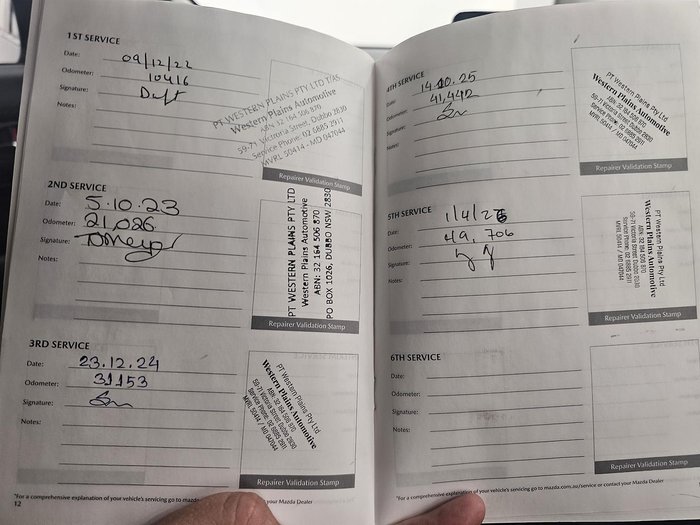 1ST SERVICE
Date: 09/12/22
Odometer: 10416
Signature:
Notes:
PT WESTERN PLAINS PTY LTD T/AS
Western Plains Automotive
ABN 32 164 506 870
59-71 Victoria Street, Dubbo 2830
Service Phone: 02 6885 2911
MVRL 50414 - MD 047044
Repairer Validation Stamp
2ND SERVICE
Date: 5.10.23
Odometer: 21,086
Signature:
Notes:
PT WESTERN PLAINS PTY LTD
Western Plains Automotive
ABN: 32 164 506 870
PO BOX 1026, DUBBO NSW 2830
Repairer Validation Stamp
3RD SERVICE
Date: 23.12.24
Odometer: 31153
Signature:
Notes:
PT Western Plains Pty Ltd
Western Plains Automotive
ABN: 32 164 506 870
59-71 Victoria Street Dubbo 2830
Service Phone: 02 6885 2911
MVRL 50414 / MD 047044
Repairer Validation Stamp
*For a comprehensive explanation of your vehicle's servicing go to mazda your Mazda Dealer
12
4TH SERVICE
Date: 14.10.25
Odometer: 41,442
Signature:
Notes:
PT Western Plains Pty Ltd
Western Plains Automotive
ABN: 32 164 506 870
59-71 Victoria Street Dubbo 2830
Service Phone: 02 6885 2911
MVRL 50414 / MD 047044
Repairer Validation Stamp
5TH SERVICE
Date: 1/4/26
Odometer: 49,706
Signature:
Notes:
PT Western Plains Pty Ltd
Western Plains Automotive
ABN: 32 164 506 870
59-71 Victoria Street Dubbo 2830
Service Phone: 02 6885 2911
MVRL 50414 / MD 047044
Repairer Validation Stamp
6TH SERVICE
Date:
Odometer:
Signature:
Notes:
Repairer Validation Stamp
*For a comprehensive explanation of your vehicle's servicing go to mazda.com.au/service or contact your Mazda Dealer